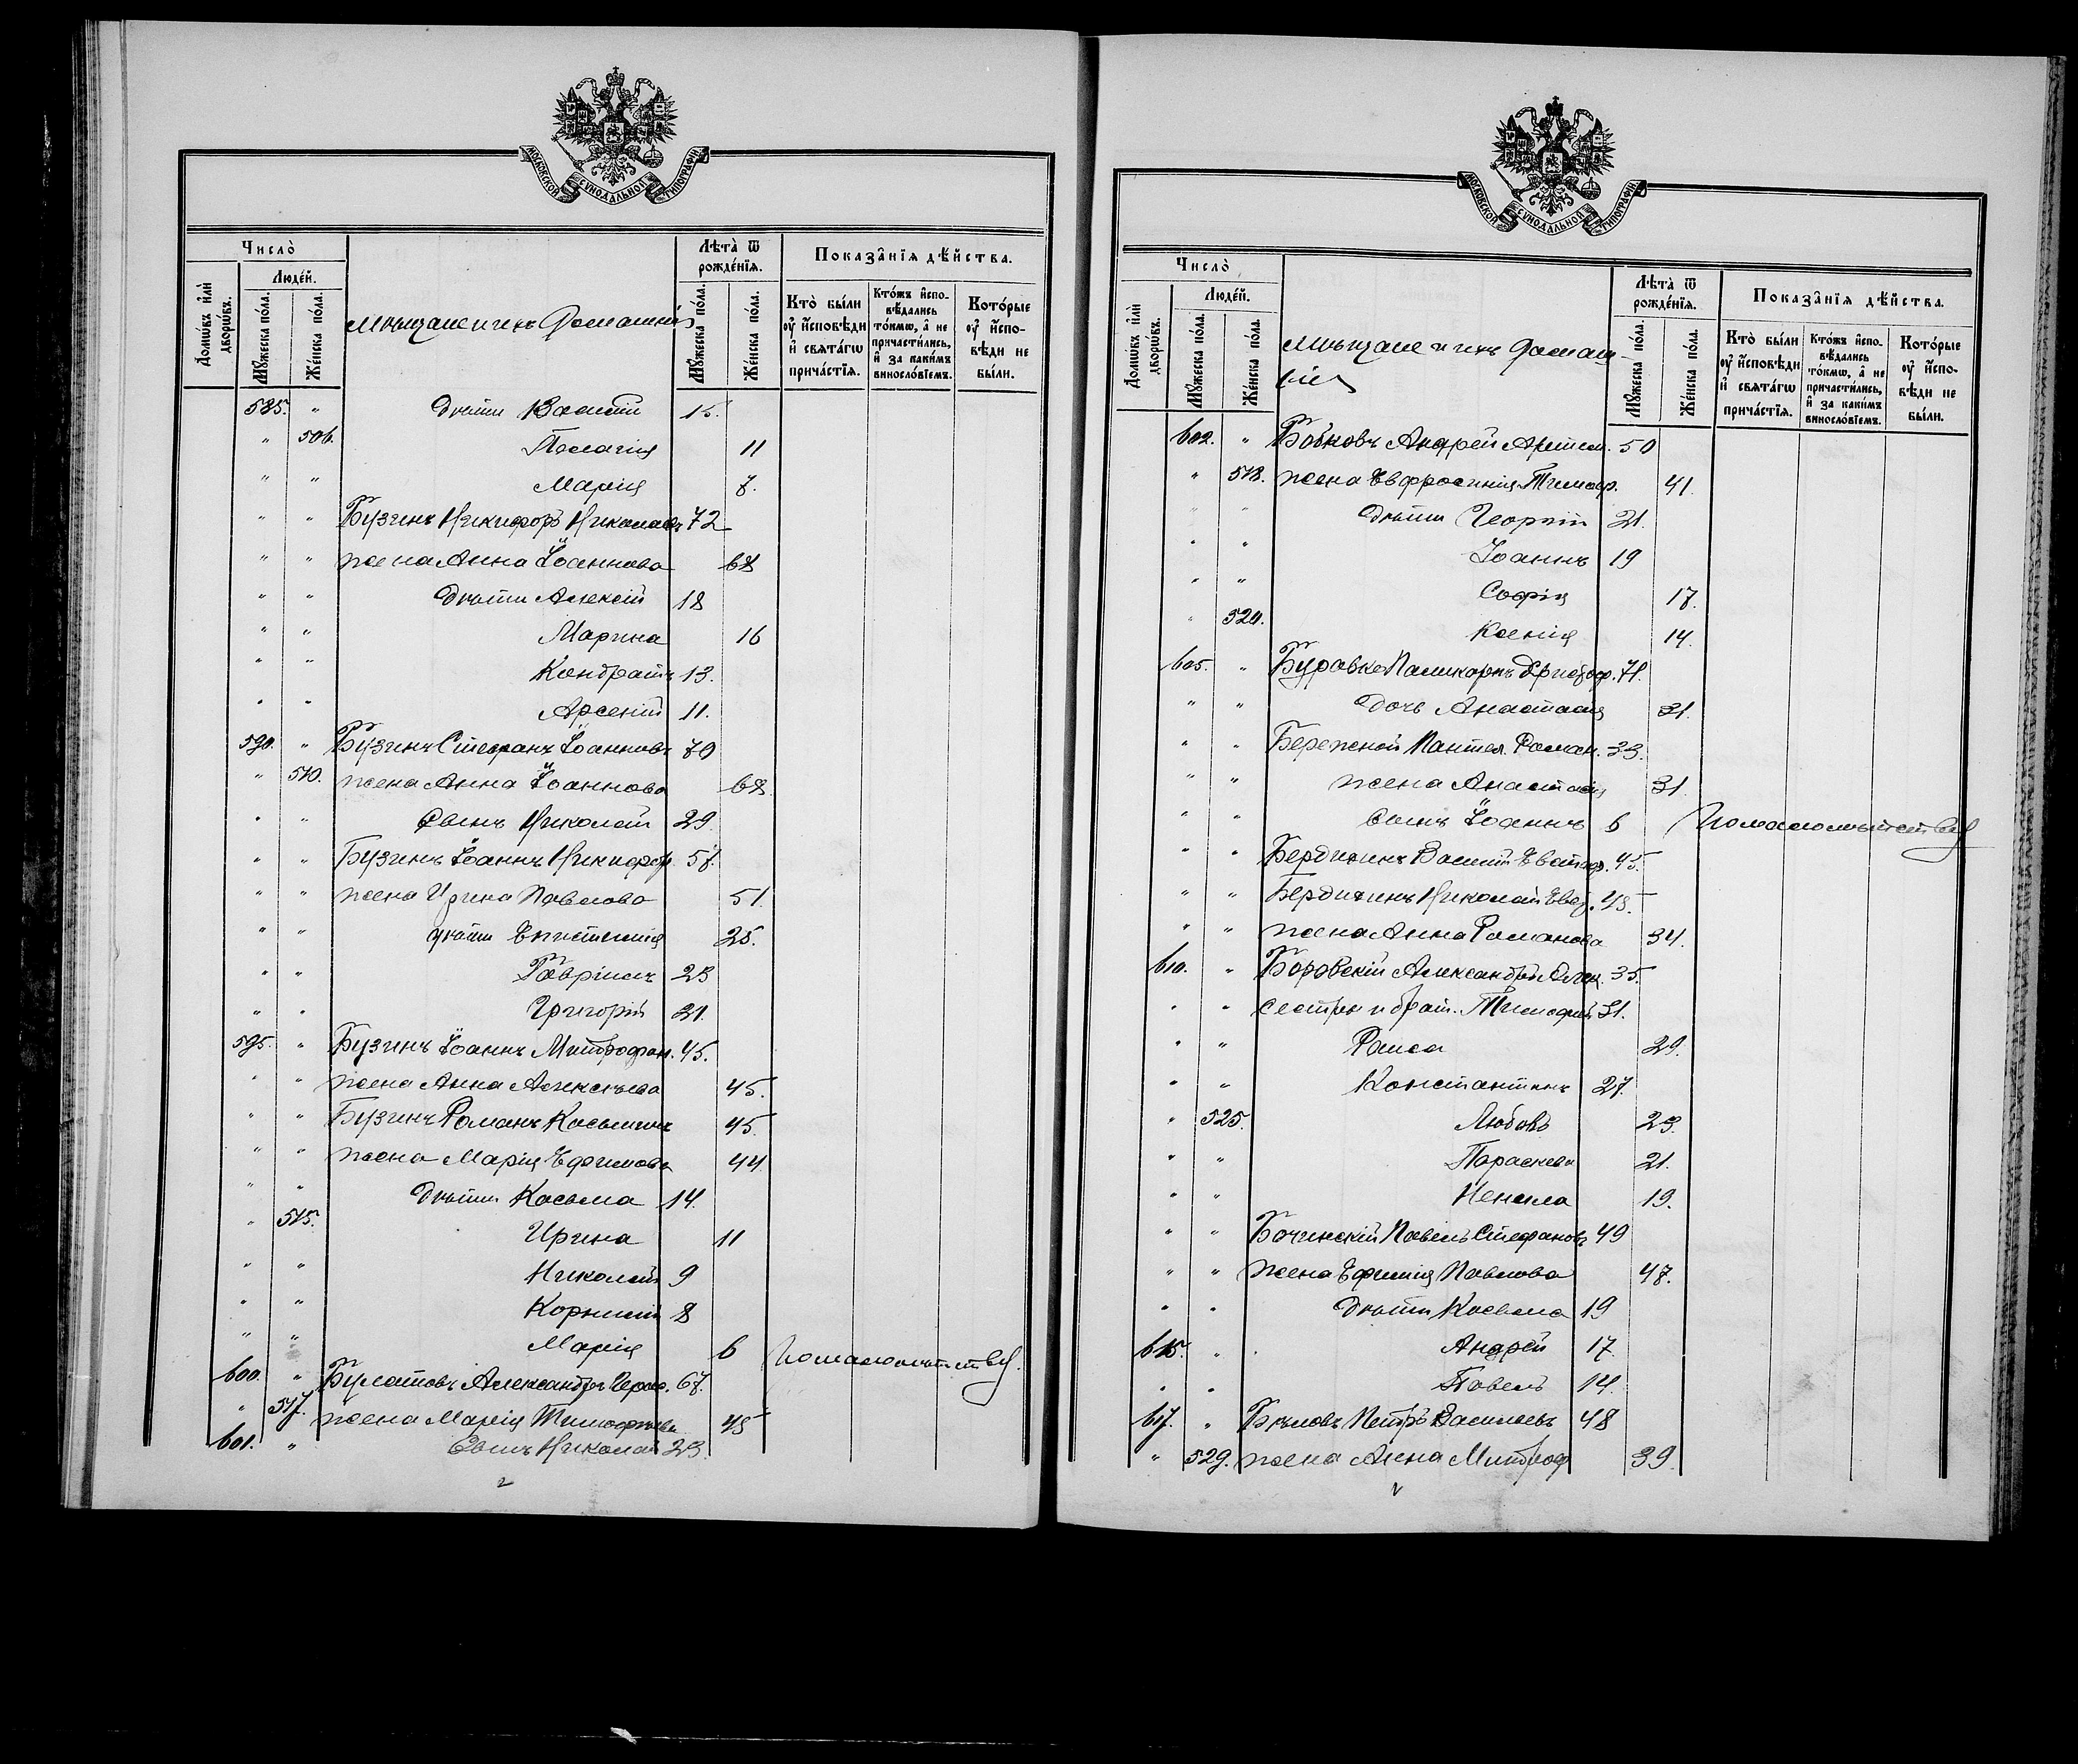 МОСКОВСКОЙ СѴНОДАЛЬНОЙ ТИПОГРАФІИ
Число̀
Домѡ́въ и҆лѝ дворѡ́въ.
Люде́й.
Мꙋ́жеска по́ла.
Же́нска по́ла.
мѣщане и ихъ домашніе
Лѣ́та ѿ рожде́нїѧ.
Мꙋ́жеска по́ла.
Же́нска по́ла.
Показа̂нїѧ дѣ́йства.
Кто̀ бы́ли ᲂу҆ и҆сповѣ́ди и҆ свѧта́гѡ прича́стїѧ.
Кто́жъ и҆сповѣ́дались то́кмѡ, а҆ не причасти́лись, и҆ за каки́мъ виносло́вїемъ.
Кото́рые ᲂу҆ и҆сповѣ́ди не бы́ли.
585. " дѣти Василій 15.
" 506. Пелагія 11
" " Марія 7.
" " Бузинъ Никифоръ Николаевъ 72
" " жена Анна Іоаннова 68
" " дѣти Алексій 18
" " Марина 16
" " Кондратъ 13.
" " Арсеній 11.
590. " Бузинъ Стефанъ Іоанновъ 70
" 510. жена Анна Іоаннова 68.
" " Сынъ Николай 29.
" " Бузинъ Іоаннъ Никифор. 57.
" " жена Ирина Павлова 51.
" " дѣти Епистимія 25.
" " Гавріилъ 23
" " Григорій 21.
595. " Бузинъ Іоаннъ Митрофан. 45.
" " жена Анна Алексѣева 45.
" " Бузинъ Романъ Косьминъ 45.
" " жена Марія Ефимова 44
" " дѣти Косьма 14.
" 515. Ирина 11
" " Николай 9
" " Корнилій 8
" " Марія 6 По малолѣтству.
600. " Булатовъ Александръ Герас. 67.
" 517. жена Марія Тимофѣева 45
601. " Сынъ Николай 23.
МОСКОВСКОЙ СѴНОДАЛЬНОЙ ТИПОГРАФІИ
Число̀
Домѡ́въ и҆лѝ дворѡ́въ.
Люде́й.
Мꙋ́жеска по́ла.
Же́нска по́ла.
мѣщане и ихъ домаш-
ніе
Лѣ́та ѿ рожде́нїѧ.
Мꙋ́жеска по́ла.
Же́нска по́ла.
Показа̂нїѧ дѣ́йства.
Кто̀ бы́ли ᲂу҆ и҆сповѣ́ди и҆ свѧта́гѡ прича́стїѧ.
Кто́жъ и҆сповѣ́дались то́кмѡ, а҆ не причасти́лись, и҆ за каки́мъ виносло́вїемъ.
Кото́рые ᲂу҆ и҆сповѣ́ди не бы́ли.
602. " Бойковъ Андрей Артем. 50
" 518. жена Евфросинія Тимоф. 41.
" " дѣти Георгій 21.
" " Іоаннъ 19
" " Софія 17.
" 520. Ксенія 14.
605. " Буровко Поликарпъ Христоф. 71.
" " дочь Анастасія 31.
" " Бережной Пантел. Роман. 33.
" " жена Анастасія 31.
" " Сынъ Іоаннъ 6 По малолѣтству
" " Бердичинъ Василій Евстаф. 45.
" " Бердичинъ Николай 43.
" " жена Анна Романова 34.
610. " Боровскій Александръ Алек. 35.
" " сестры и брат. Тимофей 31.
" " Раиса 29.
" " Константинъ 27.
" 525. Любовь 23.
" " Параскева 21.
" " Ненила 19.
" " Бочинскій Павелъ Стефановъ 49
" " жена Ефимія Павлова 47.
" " дѣти Косьма 19
615. " Андрей 17.
" " Павелъ 14.
617. " Бѣловъ Петръ Васильевъ 48
" 529. жена Анна Митроф 39.